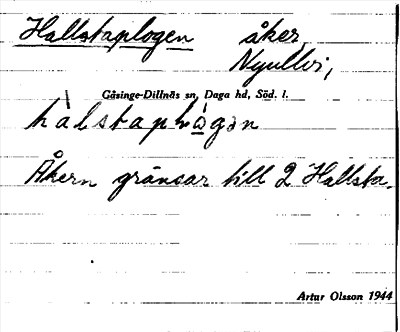 Hallstaplogen åker
Nyullvi,
Gåsinge-Dillnäs sn, Daga hd, Söd. l.
Åkern gränsar till 2 Hallsta.
Artur Olsson 1944